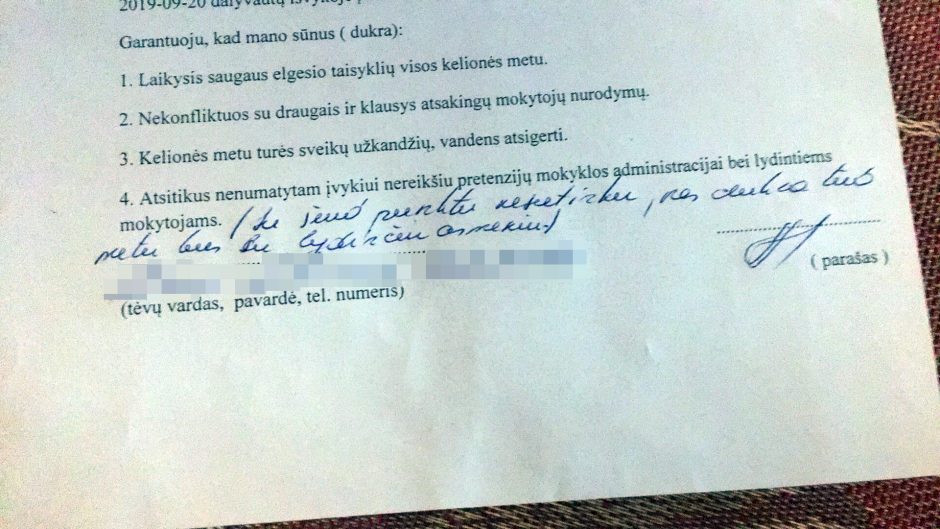 2019-09-20 dalyvautų išvykoje
Garantuoju, kad mano sūnus ( dukra):
1. Laikysis saugaus elgesio taisyklių visos kelionės metu.
2. Nekonfliktuos su draugais ir klausys atsakingų mokytojų nurodymų.
3. Kelionės metu turės sveikų užkandžių, vandens atsigerti.
4. Atsitikus nenumatytam įvykiui nereikšiu pretenzijų mokyklos administracijai bei lydintiems
mokytojams. (Su šiuo punktu nesutinku, nes dukra tuo
metu bus su lydinčiu asmeniu)
( parašas )
(tėvų vardas, pavardė, tel. numeris)